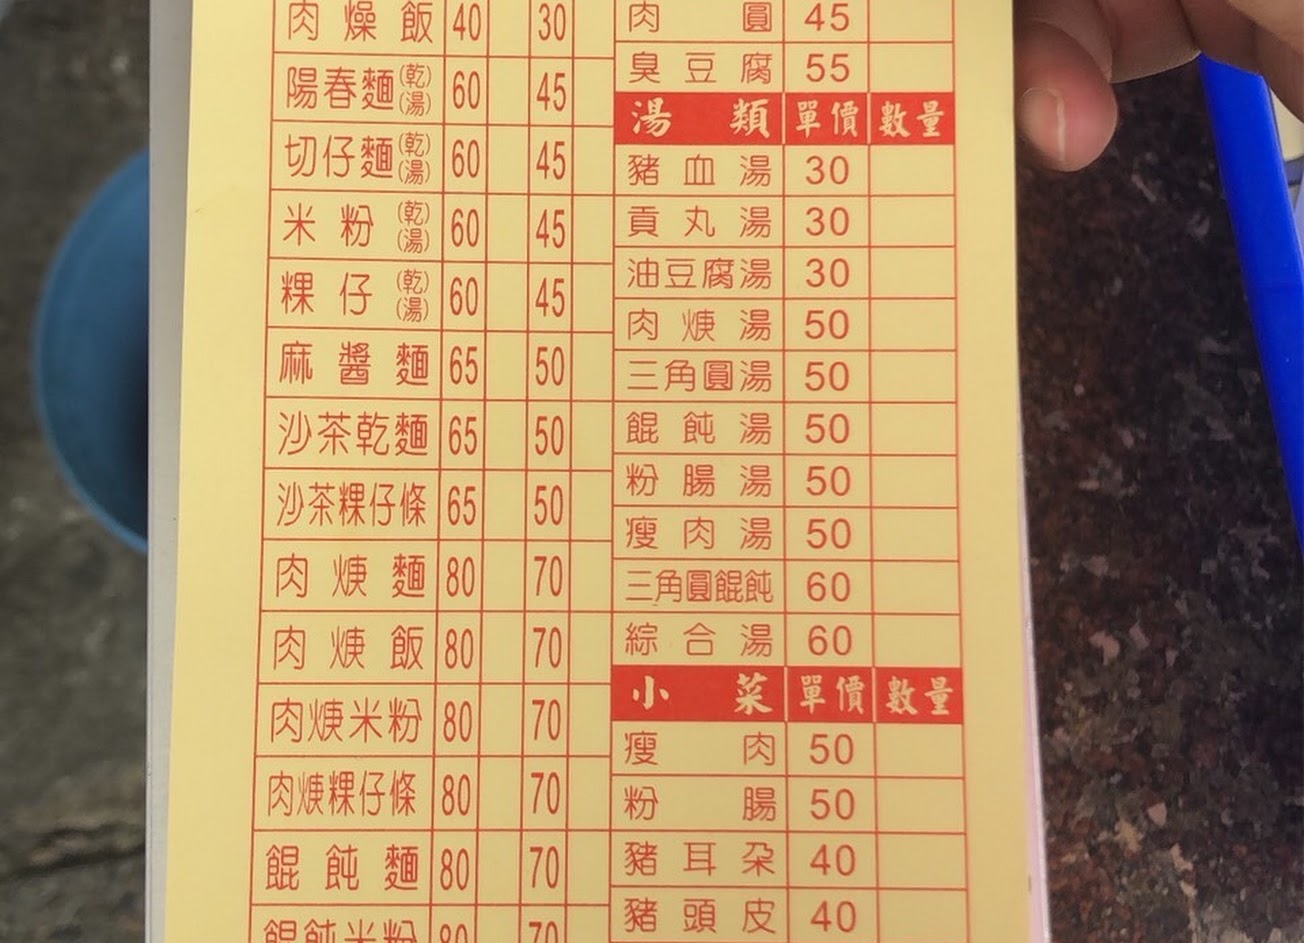 肉燥飯 40 30
陽春麵(乾)(湯) 60 45
切仔麵(乾)(湯) 60 45
米粉(乾)(湯) 60 45
粿仔(乾)(湯) 60 45
麻醬麵 65 50
沙茶乾麵 65 50
沙茶粿仔條 65 50
肉焿麵 80 70
肉焿飯 80 70
肉焿米粉 80 70
肉焿粿仔條 80 70
餛飩麵 80 70
餛飩米粉 80 70
肉圓 45
臭豆腐 55
湯類 單價 數量
豬血湯 30
貢丸湯 30
油豆腐湯 30
肉焿湯 50
三角圓湯 50
餛飩湯 50
粉腸湯 50
瘦肉湯 50
三角圓餛飩 60
綜合湯 60
小菜 單價 數量
瘦肉 50
粉腸 50
豬耳朵 40
豬頭皮 40